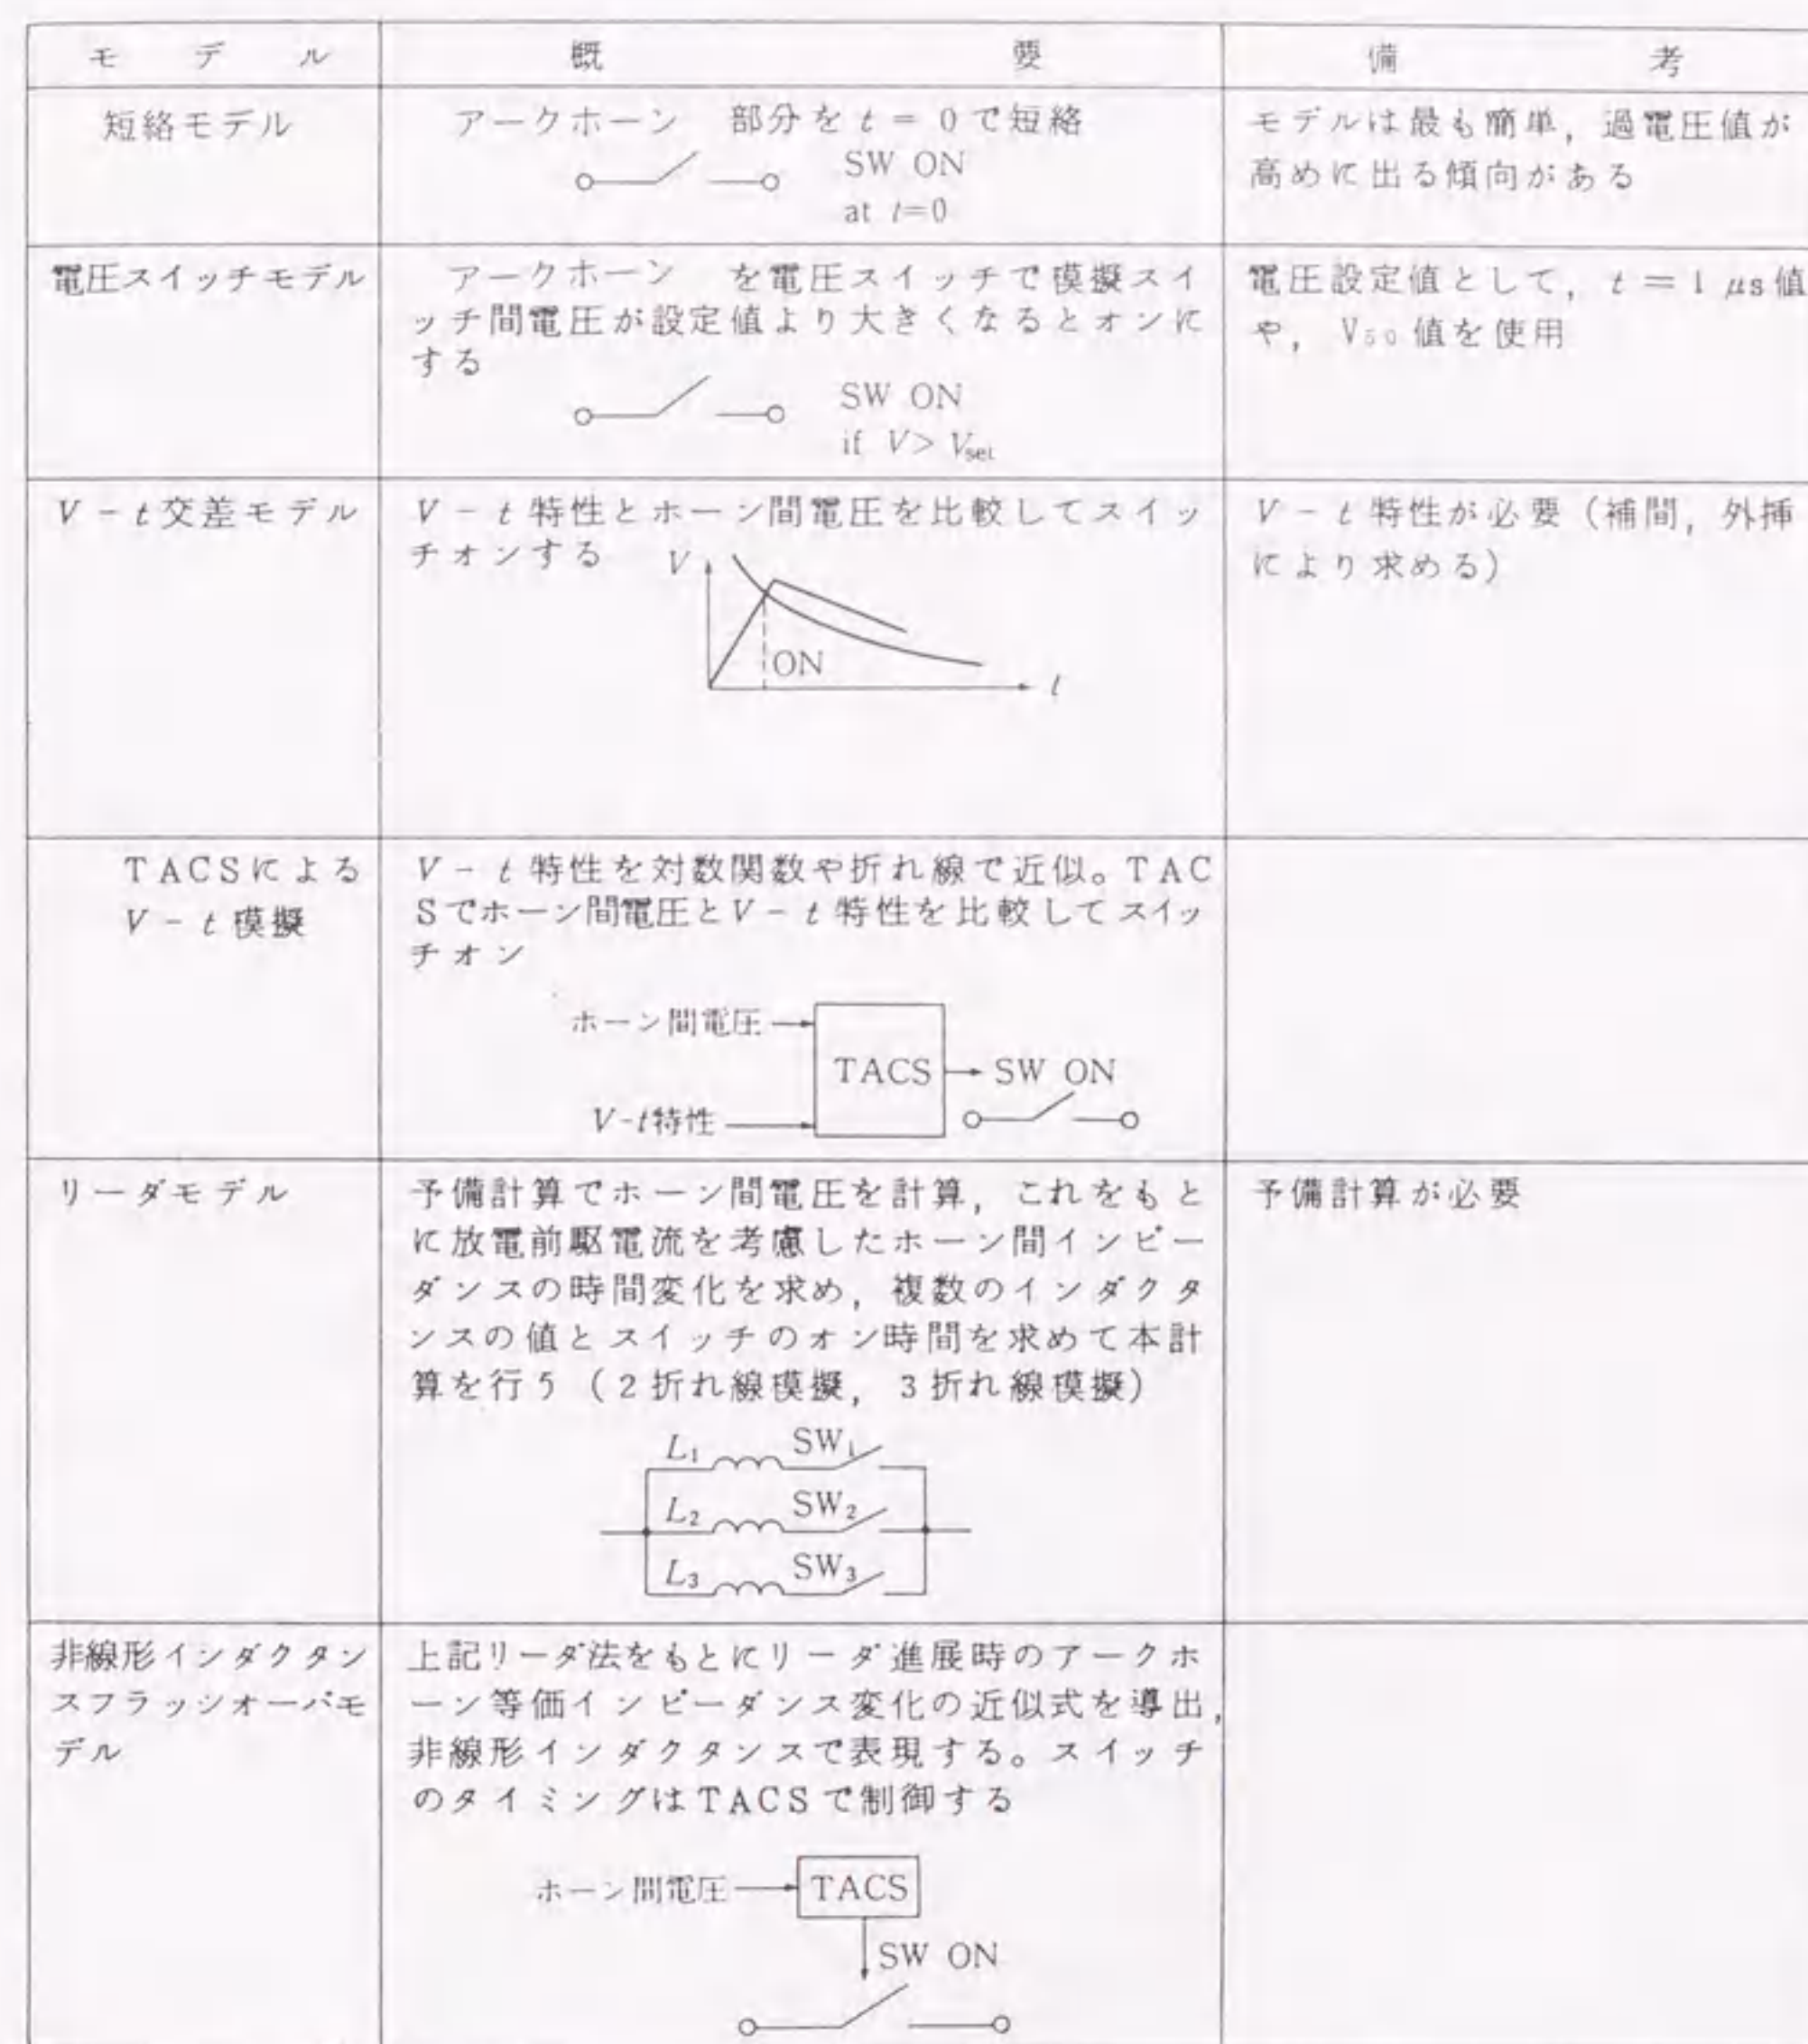 モデル 概要 備考
短絡モデル
アークホーン 部分をt = 0で短絡
SW ON
at t=0
モデルは最も簡単，過電圧値が
高めに出る傾向がある
電圧スイッチモデル
アークホーン を電圧スイッチで模擬スイ
ッチ間電圧が設定値より大きくなるとオンに
する
SW ON
if V> Vset
電圧設定値として，t = 1 μs値
や，V50値を使用
V - t交差モデル
V - t特性とホーン間電圧を比較してスイッ
チオンする
V
ON
t
V - t特性が必要（補間，外挿
により求める）
TACSによる
V - t模擬
V - t特性を対数関数や折れ線で近似。TAC
Sでホーン間電圧とV - t特性を比較してスイッ
チオン
ホーン間電圧
TACS
SW ON
V-t特性
リーダモデル
予備計算でホーン間電圧を計算，これをもと
に放電前駆電流を考慮したホーン間インピー
ダンスの時間変化を求め，複数のインダクタ
ンスの値とスイッチのオン時間を求めて本計
算を行う（2折れ線模擬，3折れ線模擬）
L1 SW1
L2 SW2
L3 SW3
予備計算が必要
非線形インダクタン
スフラッシオーバモ
デル
上記リーダ法をもとにリーダ進展時のアークホ
ーン等価インピーダンス変化の近似式を導出，
非線形インダクタンスで表現する。スイッチ
のタイミングはTACSで制御する
ホーン間電圧
TACS
SW ON